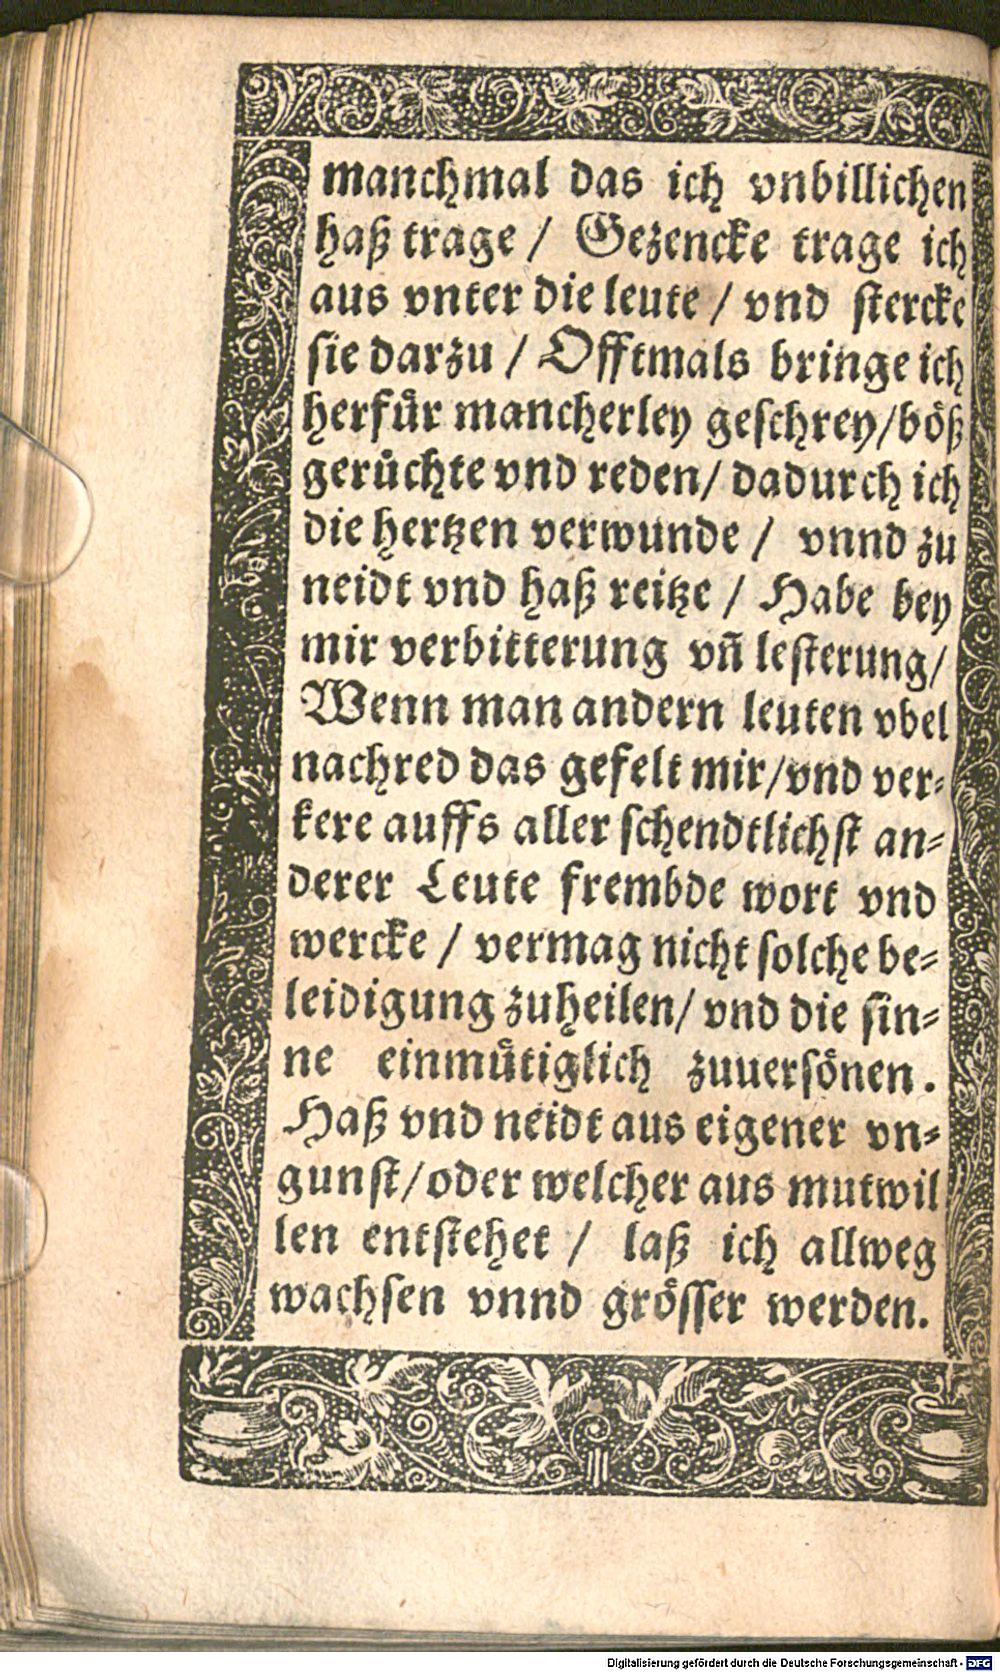 manchmal das ich vnbillichen
haß trage / Gezencke trage ich
aus vnter die leute / vnd stercke
sie darzu / Offtmals bringe ich
herfuͤr mancherley geschrey/boͤß
geruͤchte vnd reden/ dadurch ich
die hertzen verwunde / vnnd zu
neidt vnd haß reitze / Habe bey
mir verbitterung vñ lesterung/
Wenn man andern leuten vbel
nachred das gefelt mir/vnd ver-
kere auffs aller schendtlichst an-
derer Leute frembde wort vnd
wercke / vermag nicht solche be-
leidigung zuheilen/ vnd die sin-
ne einmuͤtiglich zuuersoͤnen.
Haß vnd neidt aus eigener vn-
gunst/oder welcher aus mutwil
len entstehet / laß ich allweg
wachsen vnnd groͤsser werden.
Digitalisierung gefördert durch die Deutsche Forschungsgemeinschaft - DFG